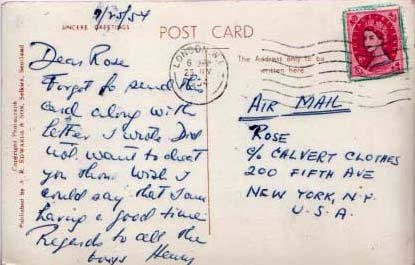 9/25/54
SINCERE GREETINGS
POST CARD
Dear Rose
Forgot to send this
card along with
letter I wrote Did
not want to cheat
you though Wish I
could say that I am
having a good time
Regards to all the
boys Henry
Copyright Photograph
Published by A. R. EDWARDS & SON, Selkirk, Scotland
LONDON. W.1
6
25
The Address only to be
written here.
AIR MAIL
ROSE
C/o CALVERT CLOTHES
200 FIFTH AVE
NEW YORK, N.Y.
U. S. A.